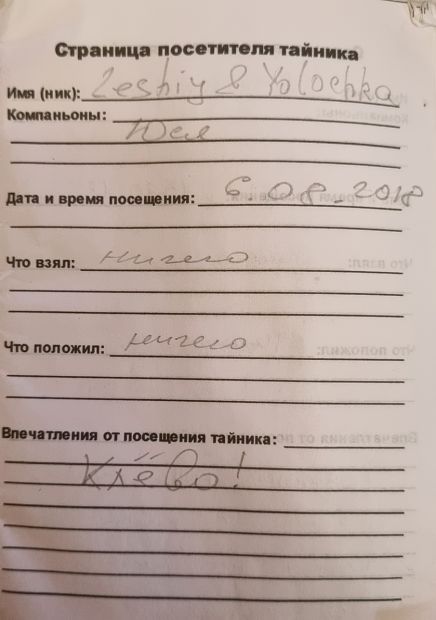 Страница посетителя тайника
Имя (ник): Leshiy & Yolochka
Компаньоны:
Юся
Дата и время посещения: 6.08.2018
Что взял: ничего
Что положил: ничего
Впечатления от посещения тайника:
Клёво!